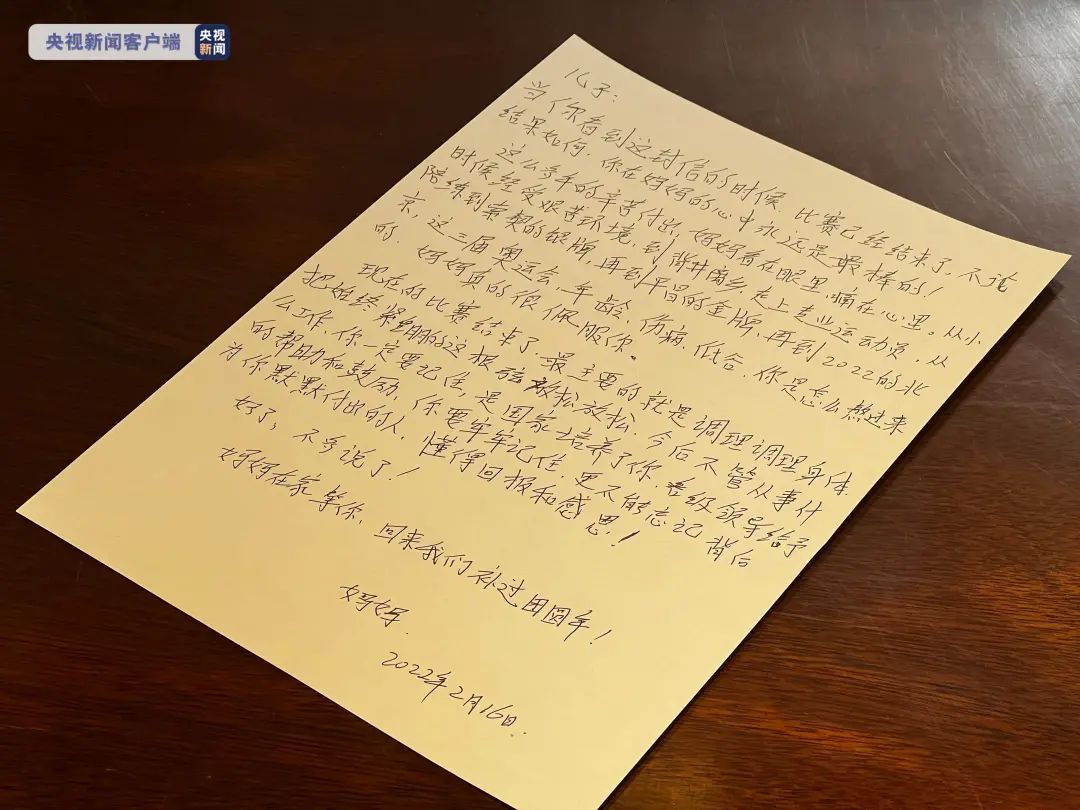 央视新闻客户端 央视新闻
儿子:
当你看到这封信的时候,比赛已经结束了,不论
结果如何,你在妈妈的心中永远是最棒的!
这么多年的辛苦付出,妈妈看在眼里,痛在心里。从小
时候经受艰苦环境,到背井离乡,走上专业运动员,从
陪练到索契的银牌,再到平昌的金牌,再到2022的北
京,这三届奥运会,年龄、伤病、低谷,你是怎么熬过来
的,妈妈真的很佩服你。
现在的比赛结束了,最主要的就是调理调理身体,
把始终紧绷的这根弦放松放松,今后不管从事什
么工作,你一定要记住,是国家培养了你,各级领导给予
的帮助和鼓励,你要牢牢记住,更不能忘记背后
为你默默付出的人,懂得回报和感恩!
好了,不多说了!
妈妈在家等你,回来我们补过团圆年!
妈妈.
2022年2月16日.